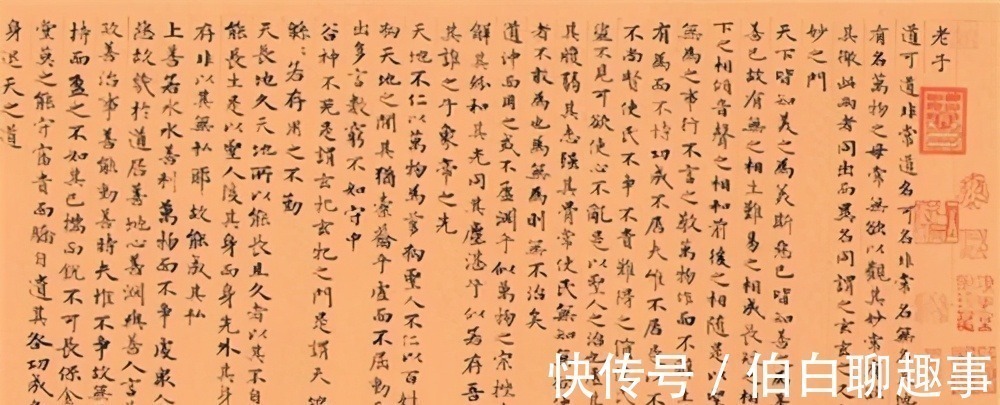 老子
道可道非常道名可名非常名無名
有名萬物之母常無欲以觀其妙常
其徼此兩者同出而異名同謂之玄玄
妙之門
天下皆知美之為美斯惡已皆知善之
善已故有無之相生難易之相成長
下之相傾音聲之相和前後之相隨是以
無為之事行不言之教萬物作而不
有為而不恃功成不居夫惟不居是
不尚賢使民不爭不貴難得之貨
盜不見可欲使心不亂是以聖人之治
其腹弱其志強其骨常使民無知
者不敢為也為無為則無不治矣
道沖而用之或不盈淵乎似萬物之宗挫
解其紛和其光同其塵湛兮似若存吾
其誰之子象帝之先
天地不仁以萬物為芻狗聖人不仁以百姓
狗天地之間其猶橐籥乎虛而不屈動
出多言數窮不如守中
谷神不死是謂玄牝玄牝之門是謂天
緜緜若存用之不勤
天長地久天地所以能長且久者以其不自
能長生是以聖人後其身而身先外其身
存非以其無私耶故能成其私
上善若水水善利萬物而不爭處眾人
惡故幾於道居善地心善淵與善人言
政善治事善能動善時夫惟不爭故無
持而盈之不如其已揣而銳不可長保金
堂莫之能守富貴而驕自遺其咎功成名
身退天之道
快传号/伯白聊趣事